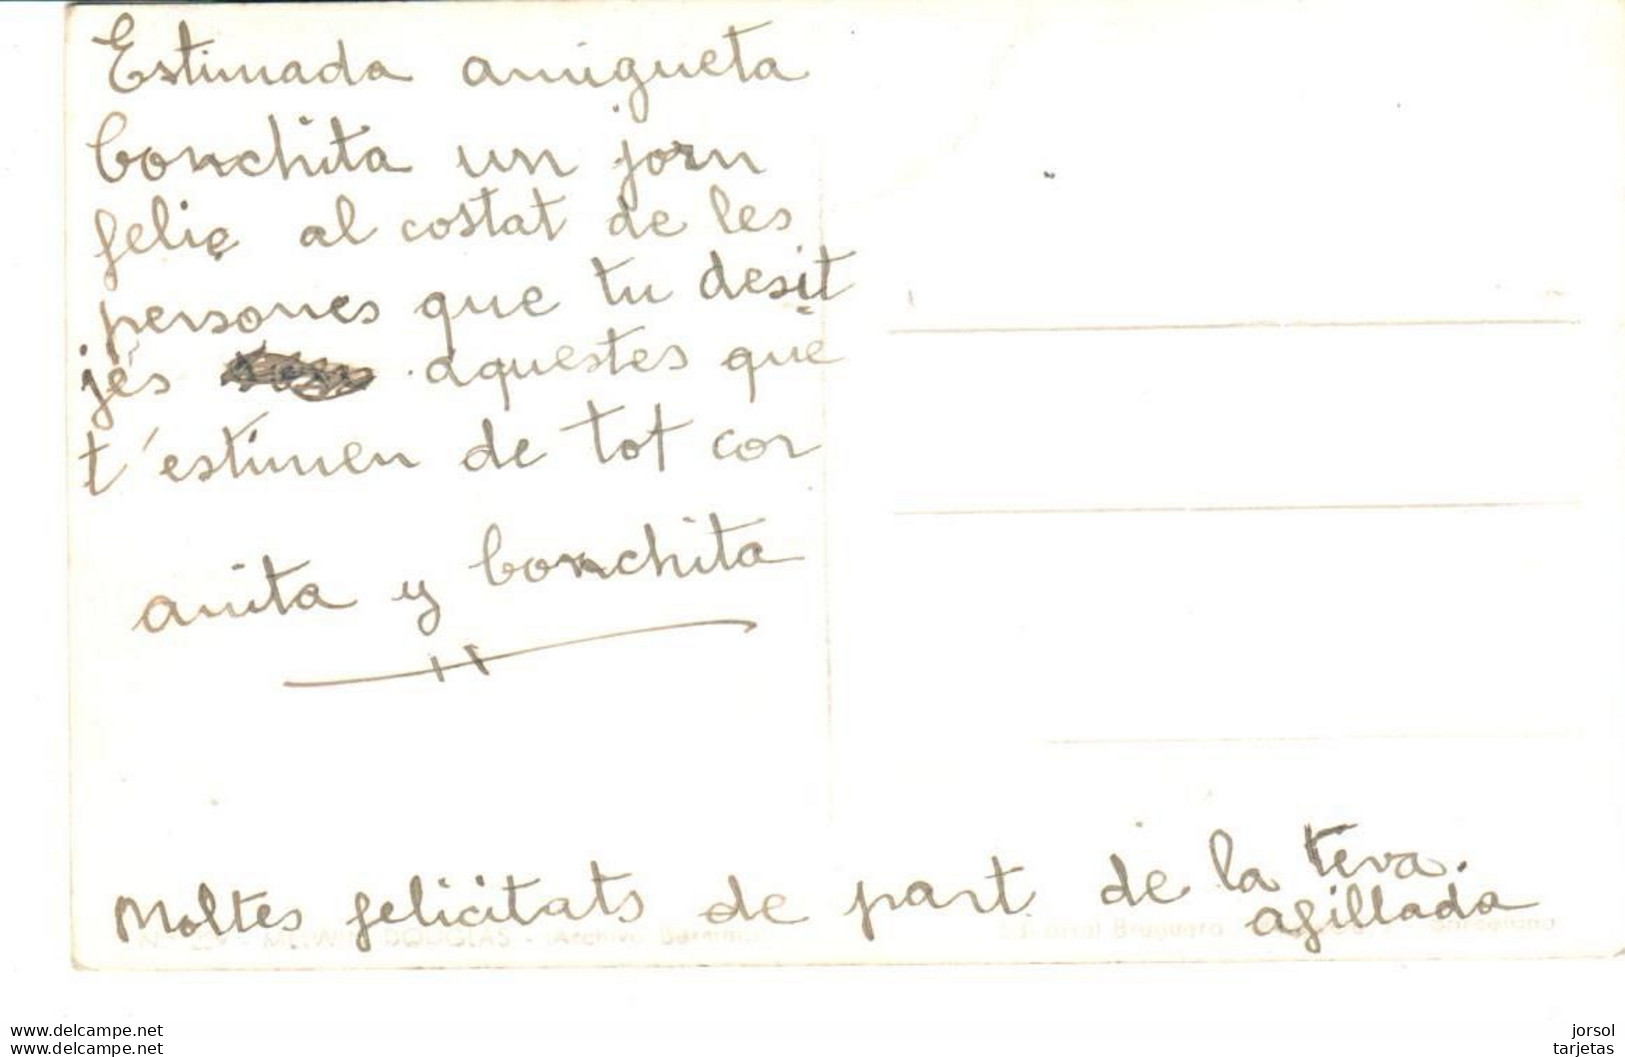 Estimada amigueta
Conchita un jorn
feliç al costat de les
persones que tu desit
jés aquestes que
t'estimen de tot cor
anita y Conchita
Moltes felicitats de part de la teva.
afillada
MELWIN DOUGLAS - (Archivo Bermejo)
Editorial Bruguera Barcelona
www.delcampe.net
www.delcampe.net
jorsol
tarjetas